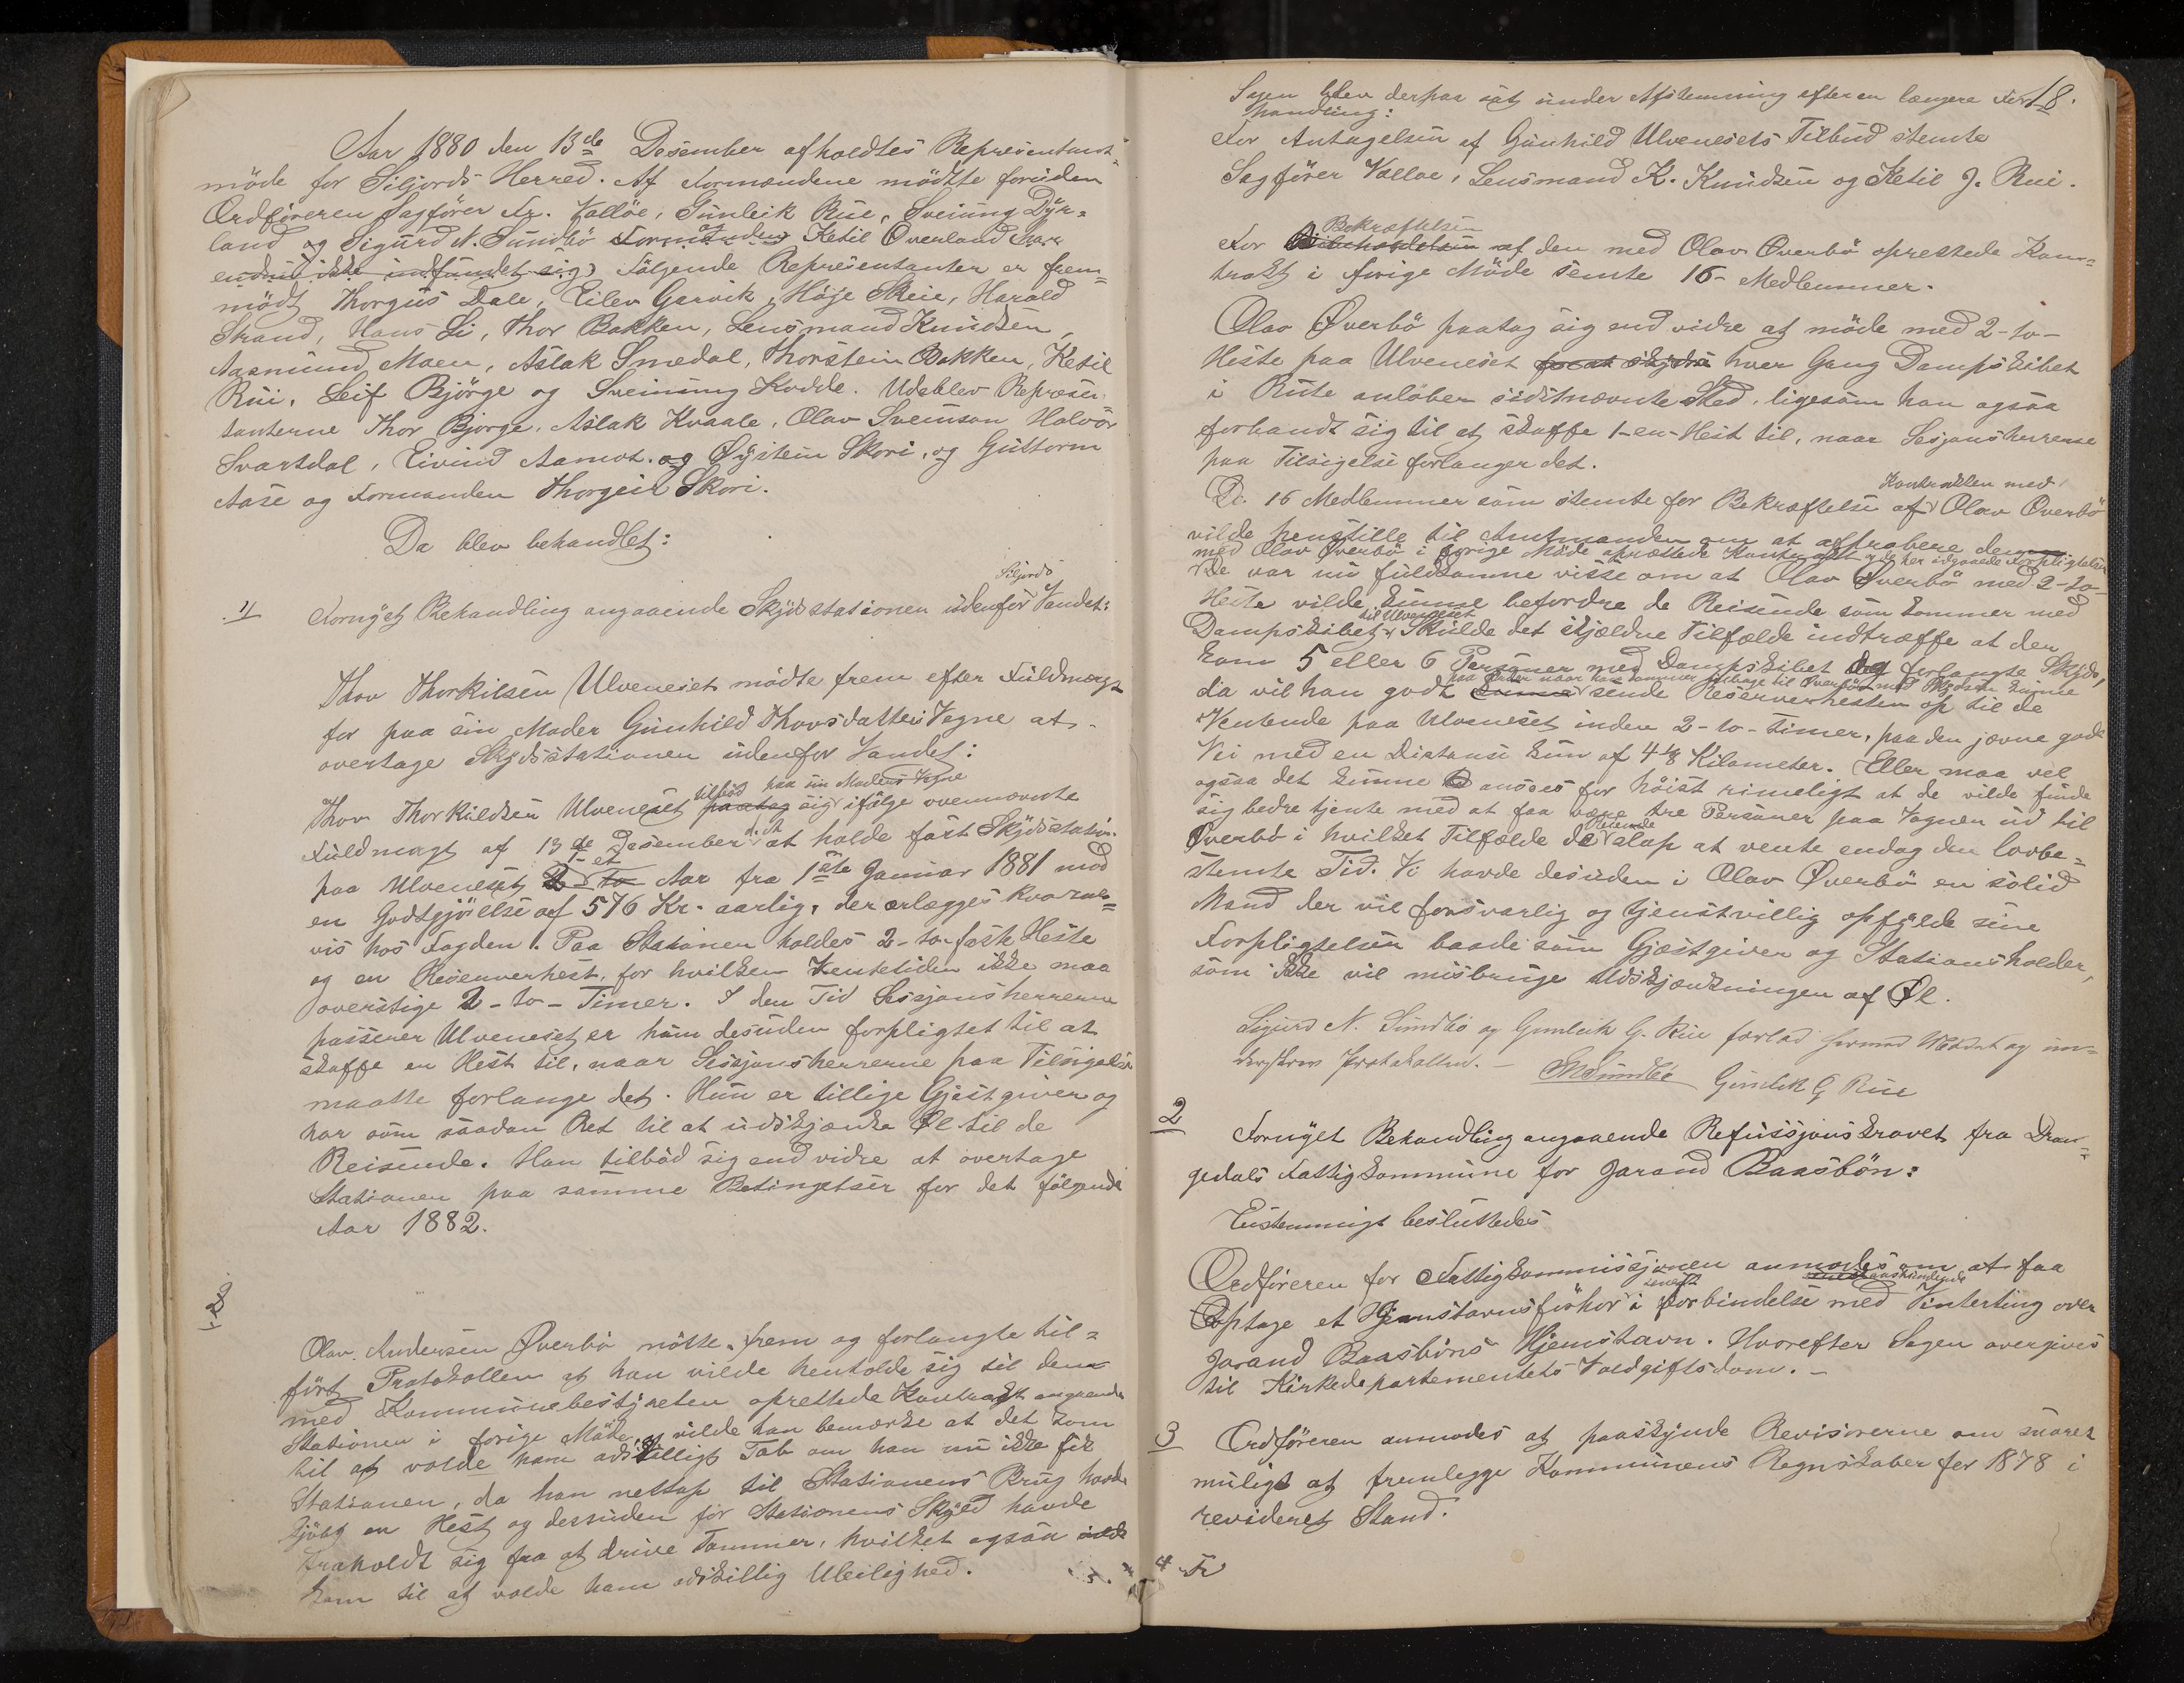 Aar 1880 den 13de Desember afholdtes Representant=
möde for Siljords Herred. Af Formændene mödtte foruden
Ordföreren Sagförer Fr. Vallöe, Gunleik Rue, Sveinung Dyr=
land og Sigurd N. Sundbö Formanden og Ketil Överland har
endnu ikke indfundet sig) Fölgende Representanter er frem=
mödt Thorgus Dale, Eilev Garvik, Höje Skeie, Harald
Strand, Hans Li, Thor Bakken, Lensmand Knudsen,
Aasmund Moen, Aslak Smedal, Thorstein Bakken, Ketil
Rui, Leif Björge og Sveinung Kodde. Udeblev Represen
tanterne Thor Bjorge, Aslak Kvaale, Olav Svensson Halvor
Svartdal, Eivind Aamot og Öystein Skori, og Guttorm
Aase og Formanden Thorgeir Skori.
Da blev behandlet:
1/ Fornyet Behandling angaaende Skydsstationen udenfor Siljords Vandet:
Thov Thorkilsen Ulveneset mödte frem efter Fuldmagt
for paa sin Moder Gunhild Thovsdatters Vegne at
overtage Skydsstationen udenfor Vandet:
tilböd paa sin Moders Vegne
Thov Thorkildsen Ulveneset paatog sig ifölge ovennævnte
Fuldmagt af 13de Desember d. A. at holde fast Skydsstation
1- et
paa Ulveneset 2 to Aar fra 1ste Januar 1881 mod
en Godtgjörelse af 576 Kr. aarlig, der erlægges kvartal=
vis hos Fogden. Paa Stationen holdes 2-to- faste Heste
og en Reserverhest, for hvilken Ventetiden ikke maa
overstige 2-to- Timer. I den Tid Sessjonsherrerne
passerer Ulveneset er hun desuden forpligtet til at
skaffe en Hest til, naar Sessjonsherrerne paa Tilsigelse
maatte forlange det. Hun er tillige Gjestgiver og
har som saadan Ret til at udskjænke Öl til de
Reisende. Han tilböd sig end vidre at overtage
Stationen paa samme Betingelser for det fölgende
Aar 1882.
Olav Andersen Överbö mötte frem og forlangte til=
fört Protokollen at han vilde henholde sig til den
med Kommunebestyreren oprettede Kontrakt angaaende
Stationen i forige Möde, og vilde han bemærke at det kom
til at volde ham adskilligt Tab om han nu ikke fik
Stationen, da han nettop til Stationens Brug havde
kjöbt en Hest og dessuden for Stationens Skyld havde
fraholdt sig fra at drive Tømmer, hvilket ogsaa
kom til at volde ham adskillig Uleilighed.
18.
Sagen blev derpaa sat under Afstemning efter en længere For
handling:
For Antagelsen af Gunhild Ulvenesets Tilbud stemte
Sagförer Valløe, Lensmand K. Knudsen og Ketil J. Rui.
Bekræftelsen
For Bibeholdelsen af den med Olav Överbö oprettede Kon=
trakt i forige Möde stemte 16- Medlemmer.
Olav Överbö paatog sig end vidre at möde med 2-to-
Heste paa Ulveneset for at skydse hver Gang Dampskibet
i Rute anlöber sidstnævnte Sted, ligesom han ogsaa
forbandt sig til at skaffe 1-en- Hest til, naar Sesjonsherrerne
paa Tilsigelse forlanger det.
De 16 Medlemmer som stemte for Bekræftelse af Kontrakten med Olav Överbö
vilde henstille til Amtmanden om at approbere den
med Olav Överbö i forige Möde oprettede Kontragt og de her indgaaede Forpligtelser
De var nu fuldkomne visse om at Olav Överbö med 2-to-
Heste vilde kunne befordre de Reisende som kommer med
Dampskibet til Ulveneset. Skulde det skjældne Tilfælde indtræffe at der
kom 5 eller 6 Personer med Dampskibet og forlangte Skyds,
paa Timen naar han kommer tilbage til Överbö med Skydsen kunne
da vil han godt kunne sende Reserverhesten op til de
Ventende paa Ulveneset inden 2-to- timer, paa den jævne gode
Vei med en Distanse kun af 4 1/8 Kilometer. Eller maa vel
ogsaa det kunne ansees for höist rimeligt at de vilde finde
sig bedre tjente med at faa være tre Personer paa Vognen ud til
Överbö i hvilket Tilfælde de Reisende slap at vente endog den lovbe=
stemte Tid. Vi havde desuden i Olav Överbö en solid
Mand der vil forsvarlig og tjenstvillig opfylde sine
Forpligtelser baade som Gjæstgiver og Stationsholder,
som ikke vil misbruge Udskjænkningen af Öl.
Sigurd N. Sundbö og Gunleik G. Rue forlod hermed Mödet og un=
derskrev Protokollen. — SNSundbö Gunleik G Rue
2 Fornyet Behandling angaaende Refusjonskravet fra Dran=
gedals Fattigkommune for Jarand Baasbön:
Enstemmigt besluttedes
Ordföreren for Fattigkommissjonen anmodes om at faa
Optage et Hjemstavnsforhör senest i Forbindelse med anstundende Vinterting over
Jarand Baasböns Hjemstavn. Hvorefter Sagen overgives
til Kirkedepartementets Voldgiftsdom. —
3 Ordföreren anmodes at paaskynde Revisorerne om snarest
muligt at fremlegge Kommunens Regnskaber for 1878 i
revideret Stand.
4 Fr